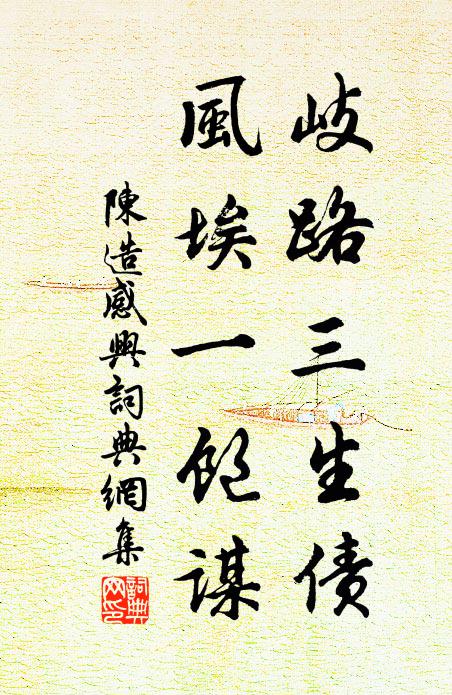 岐路三生债
風埃一飽謀
陳造感興詞典網集
詞典网印